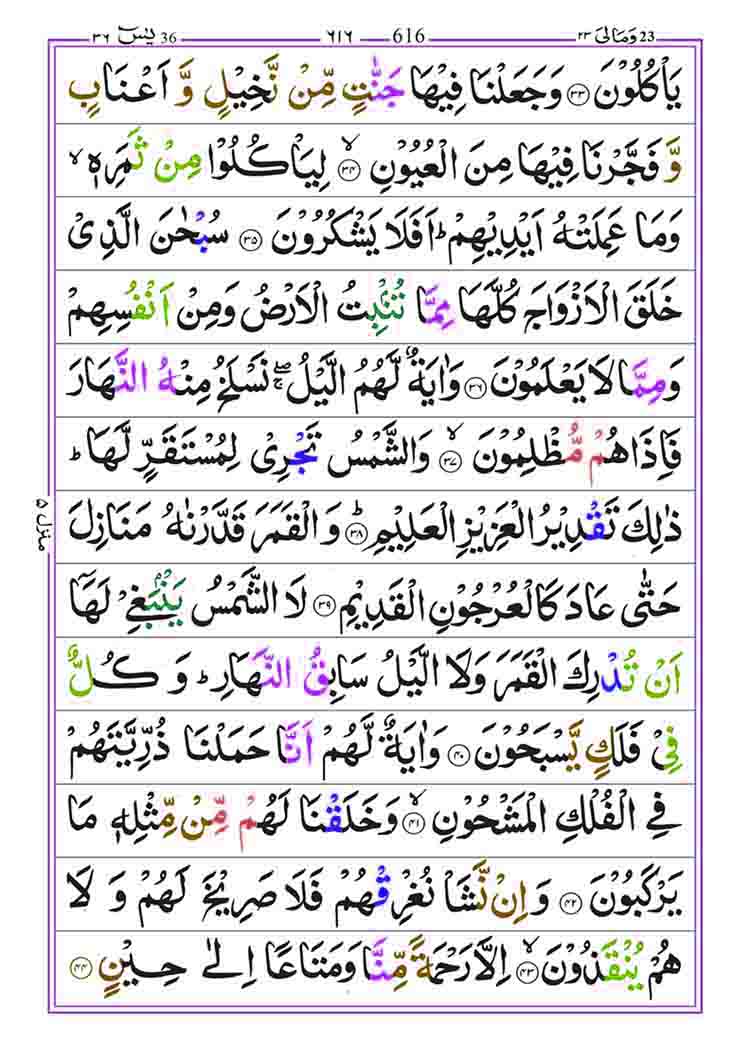 23 وَمَالِیَ ۲۳ 616 ٦١٦ 36 يٰسٓ ۳۶
يَاْكُلُوْنَ ۝۳۳ وَجَعَلْنَا فِيْهَا جَنّٰتٍ مِّنْ نَّخِيْلٍ وَّ اَعْنَابٍ
وَّ فَجَّرْنَا فِيْهَا مِنَ الْعُيُوْنِ ۙ۝۳۴ لِيَاْكُلُوْا مِنْ ثَمَرِهٖ ۙ
وَمَا عَمِلَتْهُ اَيْدِيْهِمْ ؕ اَفَلَا يَشْكُرُوْنَ ۝۳۵ سُبْحٰنَ الَّذِیْ
خَلَقَ الْاَزْوَاجَ كُلَّهَا مِمَّا تُنْۢبِتُ الْاَرْضُ وَمِنْ اَنْفُسِهِمْ
وَمِمَّا لَا يَعْلَمُوْنَ ۝۳۶ وَاٰيَةٌ لَّهُمُ الَّيْلُ ۖۚ نَسْلَخُ مِنْهُ النَّهَارَ
فَاِذَا هُمْ مُّظْلِمُوْنَ ۙ۝۳۷ وَالشَّمْسُ تَجْرِیْ لِمُسْتَقَرٍّ لَّهَا ؕ
ذٰلِكَ تَقْدِيْرُ الْعَزِيْزِ الْعَلِيْمِ ؕ۝۳۸ وَالْقَمَرَ قَدَّرْنٰهُ مَنَازِلَ
حَتّٰی عَادَ كَالْعُرْجُوْنِ الْقَدِيْمِ ۝۳۹ لَا الشَّمْسُ يَنْۢبَغِیْ لَهَاۤ
اَنْ تُدْرِكَ الْقَمَرَ وَلَا الَّيْلُ سَابِقُ النَّهَارِ ؕ وَ كُلٌّ
فِیْ فَلَكٍ يَّسْبَحُوْنَ ۝۴۰ وَاٰيَةٌ لَّهُمْ اَنَّا حَمَلْنَا ذُرِّيَّتَهُمْ
فِی الْفُلْكِ الْمَشْحُوْنِ ۙ۝۴۱ وَخَلَقْنَا لَهُمْ مِّنْ مِّثْلِهٖ مَا
يَرْكَبُوْنَ ۝۴۲ وَاِنْ نَّشَاْ نُغْرِقْهُمْ فَلَا صَرِيْخَ لَهُمْ وَ لَا
هُمْ يُنْقَذُوْنَ ۙ۝۴۳ اِلَّا رَحْمَةً مِّنَّا وَمَتَاعًا اِلٰی حِيْنٍ ۝۴۴
منزل ۵